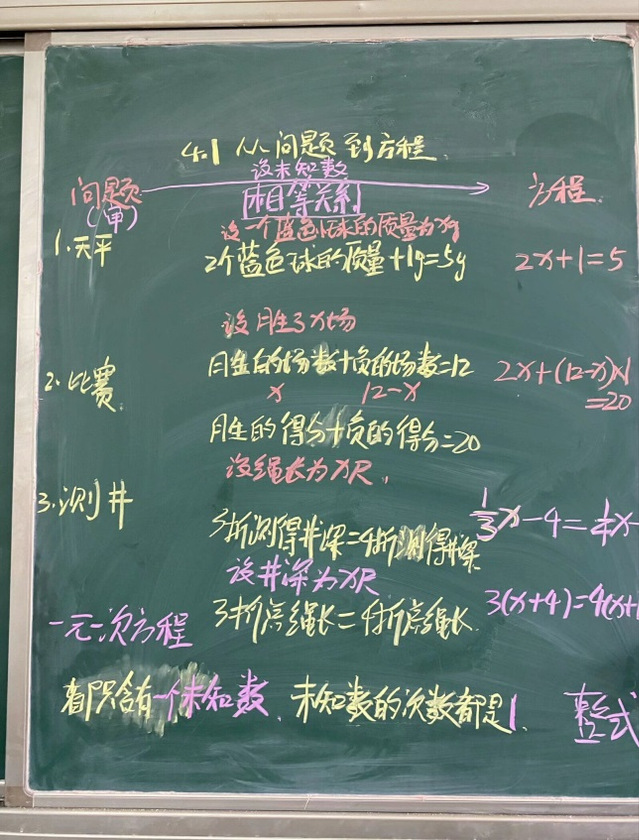 4.1 从问题到方程
设未知数
问题 相等关系 方程
(审)
设一个蓝色球的质量为xg
1.天平 2个蓝色球的质量+1g=5g 2x+1=5
设胜了x场
2.比赛 胜的场数+负的场数=12 2x+(12-x)×1
x 12-x =20
胜的得分+负的得分=20
设绳长为x尺,
3.测井 3折测得井深=4折测得井深 1/3x-4=1/4x-
设井深为x尺 3(x+4)=4(x+
一元一次方程 3折总绳长=4折总绳长
都只含有一个未知数、未知数的次数都是1. 整式